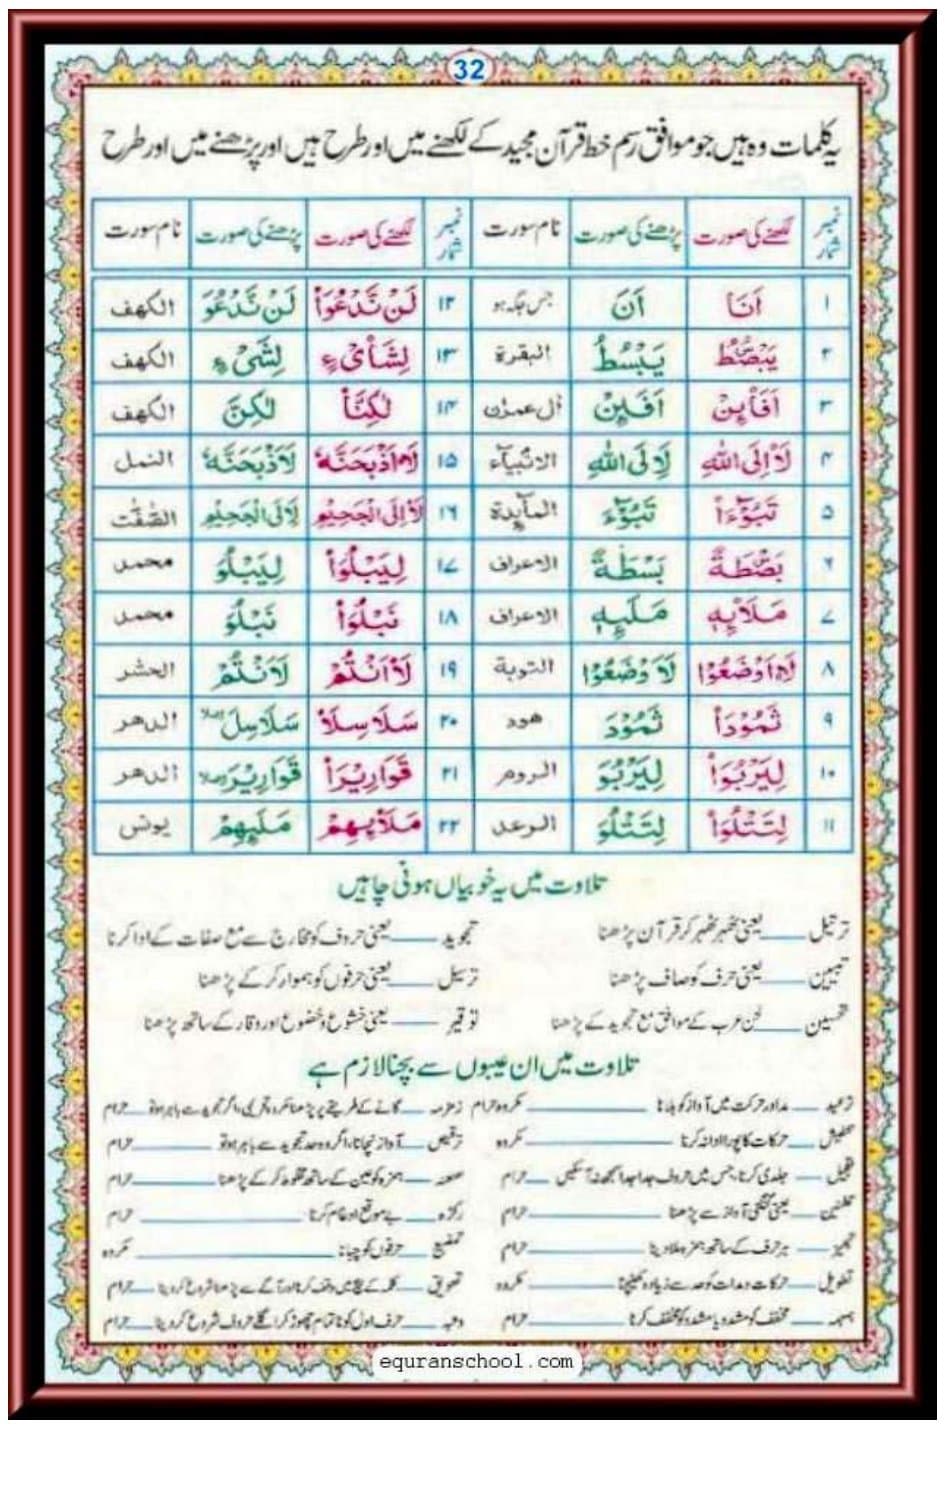 32
یہ کلمات وہ ہیں جو موافق رسم خط قرآن مجید کے لکھنے میں اور طرح ہیں اور پڑھنے میں اور طرح
نمبر شمار لکھنے کی صورت پڑھنے کی صورت نام سورت نمبر شمار لکھنے کی صورت پڑھنے کی صورت نام سورت
۱ اَنَا اَنَ جس جگہ ہو ۱۲ لَنْ نَّدْعُوَا۟ لَنْ نَّدْعُوَ الکہف
۲ یَبْصُۜطُ یَبْسُطُ البقرة ۱۳ لِشَاۡیْءٍ لِشَیْءٍ الکہف
۳ اَفَا۟ئِنْ اَفَئِنْ اٰل عمرٰن ۱۴ لٰكِنَّا۟ لٰكِنَّ الکہف
۴ لَا۟اِلَی اللّٰهِ لَاِلَی اللّٰهِ الانبیآء ۱۵ لَا۟اَذْبَحَنَّهٗ لَاَذْبَحَنَّهٗ النمل
۵ تَبُوْٓءَا۟ تَبُوْٓءَ المآیدة ۱۶ لَا۟اِلَی الْجَحِیْمِ لَاِلَی الْجَحِیْمِ الصّٰفّٰت
۶ بَصْۜطَةً بَسْطَةً الاعراف ۱۷ لِیَبْلُوَا۟ لِیَبْلُوَ محمد
۷ مَلَا۟ئِهٖ مَلَئِهٖ الاعراف ۱۸ نَبْلُوَا۟ نَبْلُوَ محمد
۸ لَا۟اَوْضَعُوْا لَاَوْضَعُوْا التوبة ۱۹ لَا۟اَنْتُمْ لَاَنْتُمْ الحشر
۹ ثَمُوْدَا۟ ثَمُوْدَ هود ۲۰ سَلَاسِلَا۟ سَلَاسِلَ الدهر
۱۰ لِیَرْبُوَا۟ لِیَرْبُوَ الروم ۲۱ قَوَارِیْرَا۟ قَوَارِیْرَ الدهر
۱۱ لِتَتْلُوَا۟ لِتَتْلُوَ الرعد ۲۲ مَلَا۟ئِهِمْ مَلَئِهِمْ یونس
تلاوت میں یہ خوبیاں ہونی چاہیں
ترتیل ــــ یعنی ٹھہر ٹھہر کر قرآن پڑھنا تجوید ــــ یعنی حروف کو مخارج سے مع صفات کے ادا کرنا
تبیین ــــ یعنی حرف کو صاف پڑھنا ترسیل ــــ یعنی حرفوں کو ہموار کر کے پڑھنا
تحسین ــــ لحن عرب کے موافق مع تجوید کے پڑھنا توقیر ــــ یعنی خشوع و خضوع اور وقار کے ساتھ پڑھنا
تلاوت میں ان عیبوں سے بچنا لازم ہے
ترعید ــــ مد اور حرکت میں آواز کو ہلانا ــــ مکروہ حرام زمزمہ ــــ گانے کے طریقے پر پڑھنا مکروہ تحریمی، اگر تجوید سے باہر ہو تو ــــ حرام
ــــ حرکات کا پورا ادا نہ کرنا ــــ مکروہ ترقیص ــــ آواز نچانا، اگر وہ حد تجوید سے باہر ہو تو ــــ حرام
تعجیل ــــ جلدی کرنا، جس میں حروف جدا جدا سمجھ نہ آسکیں ــــ حرام ــــ ہمزہ کو عین کے ساتھ مخلوط کر کے پڑھنا ــــ حرام
ــــ یعنی گنگنی آواز سے پڑھنا ــــ حرام ــــ بے موقع ادغام کرنا ــــ حرام
ــــ ہر حرف کے ساتھ ہمزہ ملا دینا ــــ حرام ــــ حرفوں کو چبانا ــــ مکروہ
تطویل ــــ حرکات و مدات کو حد سے زیادہ کھینچنا ــــ مکروہ تعویق ــــ کلمہ کے بیچ میں وقف کرنا اور آگے سے پڑھنا شروع کر دینا ــــ حرام
ــــ مخفف کو مشدد یا مشدد کو مخفف کرنا ــــ حرام ــــ حرف اول کو ناتمام چھوڑ کر اگلے حروف شروع کر دینا ــــ حرام
equranschool.com